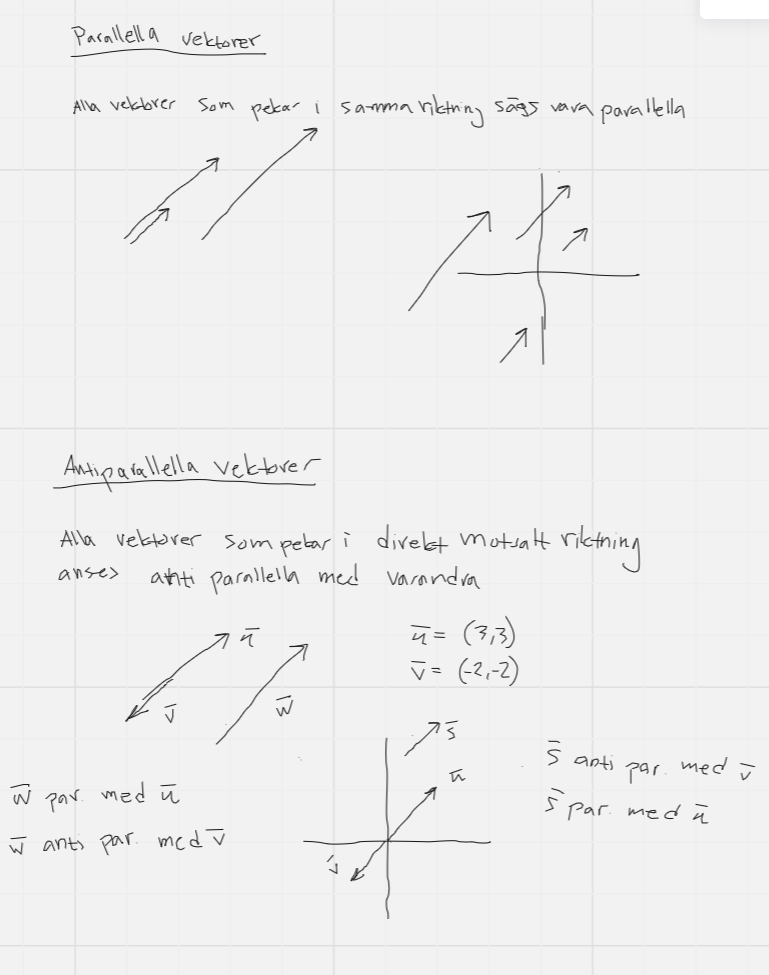 Parallella vektorer
Alla vektorer som pekar i samma riktning sägs vara parallella
Antiparallella vektorer
Alla vektorer som pekar i direkt motsatt riktning
anses anti parallella med varandra
u̅
v̅
w̅
u̅ = (3,3)
v̅ = (-2,-2)
w̅ par. med u̅
w̅ anti par. med v̅
s̅
u̅
v̅
s̅ anti par. med v̅
s̅ par. med u̅